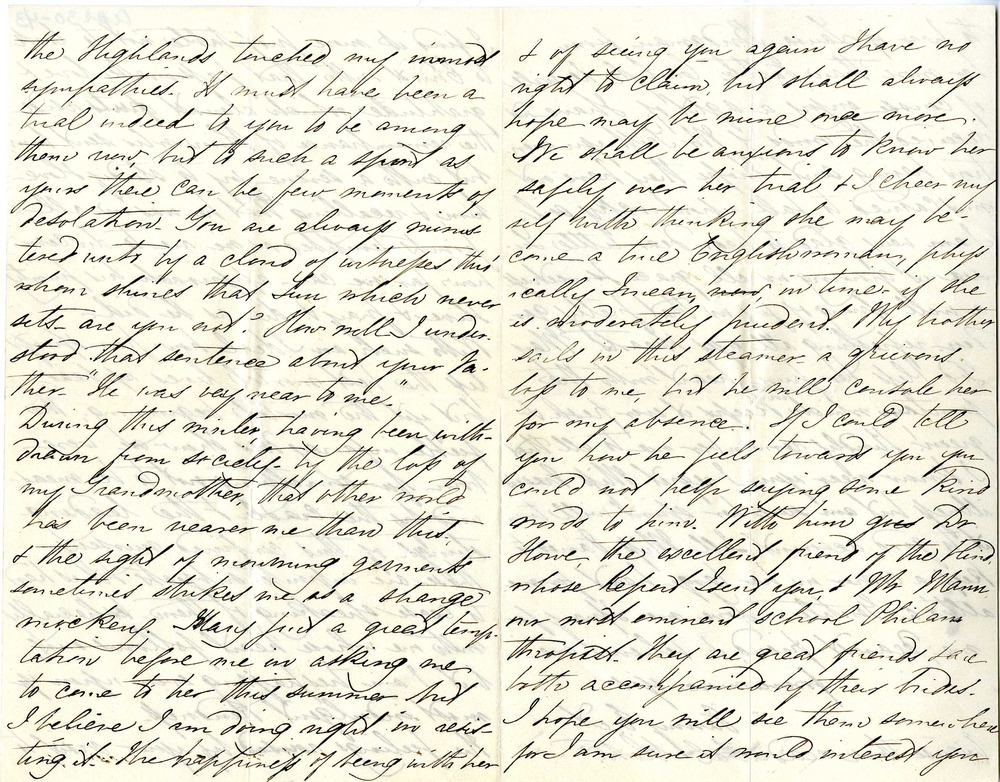 the Highlands touched my inmost
sympathies. It must have been a
trial indeed to you to be among
them now, but to such a spirit as
yours there can be few moments of
desolation. You are always minis
tered unto by a cloud of witnesses thro'
whom shines that Sun which never
sets - are you not? How well I under-
stood that sentence about your Fa-
ther - "He was very near to me."
During this winter, having been with-
drawn from society by the loss of
my Grandmother, that other world
has been nearer me than this
& the sight of mourning garments
sometimes strikes me as a strange
mockery. Mary put a great temp-
tation before me in asking me
to come to her this summer but
I believe I am doing right in resis-
ting it. The happiness of being with her
& of seeing you again I have no
right to claim, but shall always
hope may be mine once more.
We shall be anxious to know her
safely over her trial & I cheer my
self with thinking she may be-
come a true Englishwoman, phys
ically I mean, now, in time - if she
is moderately prudent. My brother
sails in this steamer, a grievous
loss to me, but he will console her
for my absence. If I could tell
you how he feels towards you you
could not help saying some kind
words to him. With him goes Dr
Howe, the excellent friend of the blind,
whose Report I send you, & Mr Mann
our most eminent school Philan
thropist. They are great friends & are
both accompanied by their brides.
I hope you will see them somewhere
for I am sure it would interest you